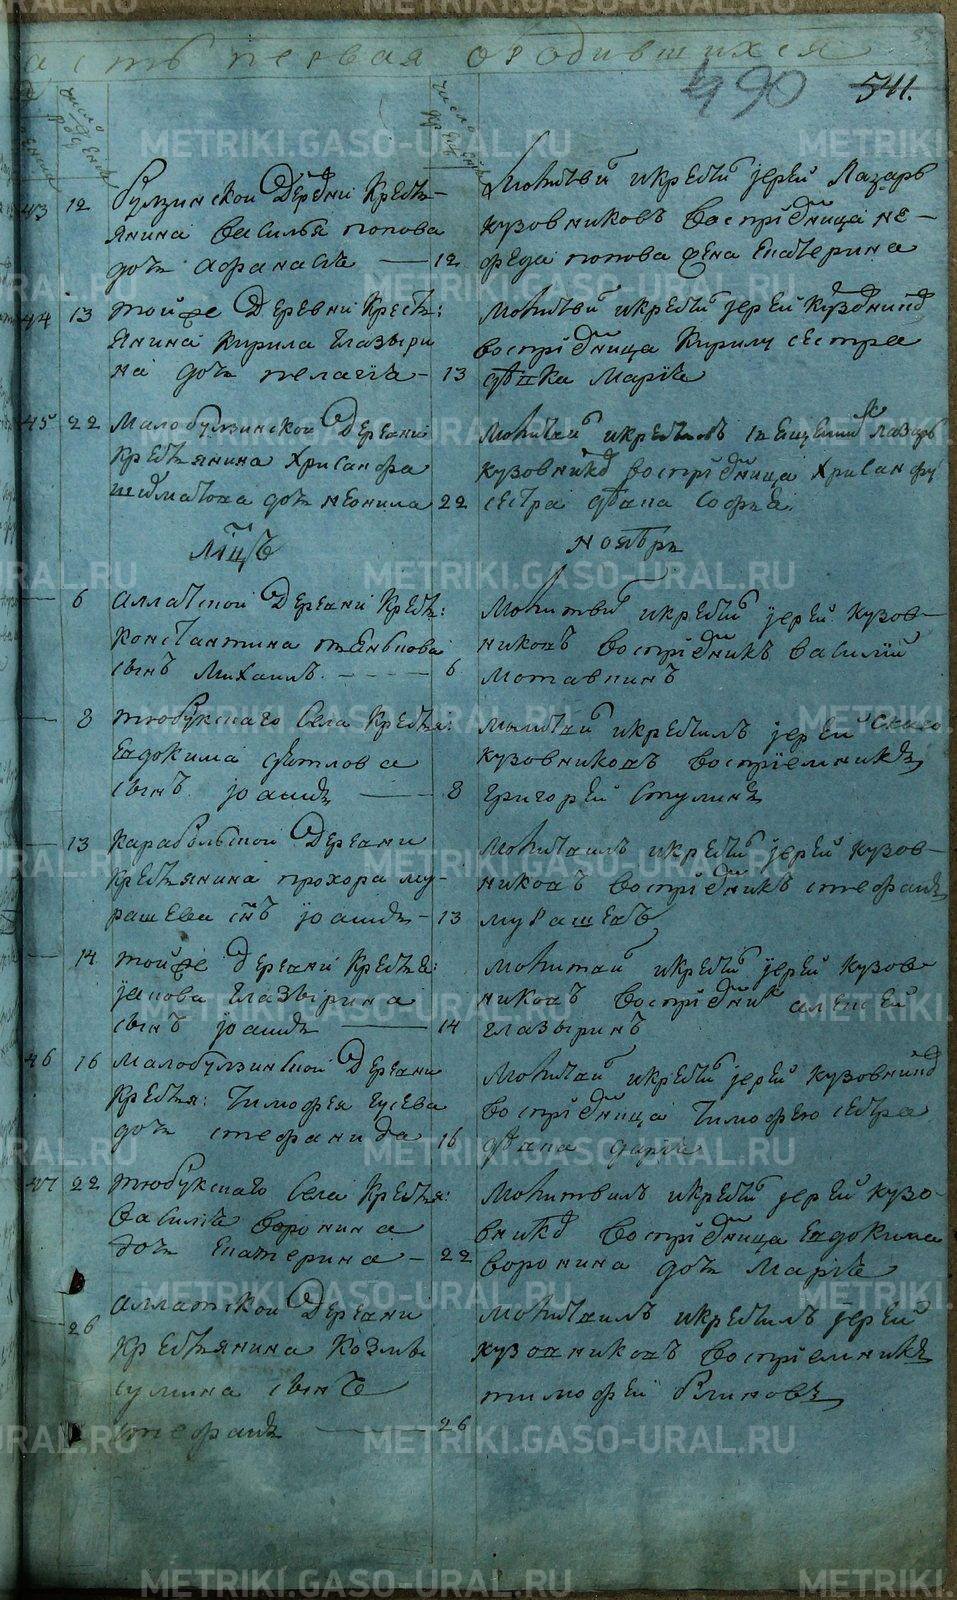 асть первая о родившихся
490 541.
число рожденія
число крещенія
43 12 Булзинской деревни кресть-
янина Василья Попова
дочь Афанасіа — 12
Молитвой и крестилъ іерей Лазарь
Кузовниковъ воспріемница не-
феда Попова жена Екатерина
44 13 той же деревни кресть:
янина Кирила Глазыри
на дочь Пелагіа — 13
Молитвой и крестилъ іерей Кузовников
воспріемница Кирилу сестра
девка Маріа
45 22 Малобулзинской деревни
крестьянина Хрисанфа
дочь Неонила 22
Молитвой и крестилъ священникъ Лазарь
Кузовников воспріемница Хрисанфу
сестра девка Софіа
Мцъ Ноябрь
6 Аллатской деревни кресть:
Константина
сынъ Михаилъ. - - - - 6
Молитвой и крестилъ іерей Кузов-
никовъ воспріемникъ Василий
Мотавкинъ
8 Тюбукскаго села крестья:
Евдокима Светлова
сынъ Іоаннъ — 8
Молитвой и крестилъ іерей
Кузовниковъ воспріемникъ
Григорей Стулинъ
13 Карабольской деревни
крестьянина Прохора Му-
рашева снъ Іоаннъ — 13
Молитвилъ и крестилъ іерей Кузов-
никовъ воспріемникъ Стефанъ
Мурашевъ
14 той же деревни крестья:
Іакова Глазырина
сынъ Іоаннъ — 14
Молитвой и крестилъ іерей Кузов-
никовъ воспріемник Алексей
Глазыринъ
46 16 Малобулзинской деревни
крестья: Тимофея Гусева
дочь Стефанида 16
Молитвой и крестилъ іерей Кузовников
воспріемница Тимофею сестра
девка Даріа
47 22 Тюбукскаго села крестья:
Василіа Воронина
дочь Екатерина — 22
Молитвилъ и крестилъ іерей Кузо-
вников воспріемница Евдокима
Воронина дочь Маріа
26 Аллатской деревни
крестьянина Козмы
Сулина сынъ
Стефанъ — 26
Молитвилъ и крестилъ іерей
Кузовниковъ воспріемникъ
Тимофей Блиновъ
METRIKI.GASO-URAL.RU